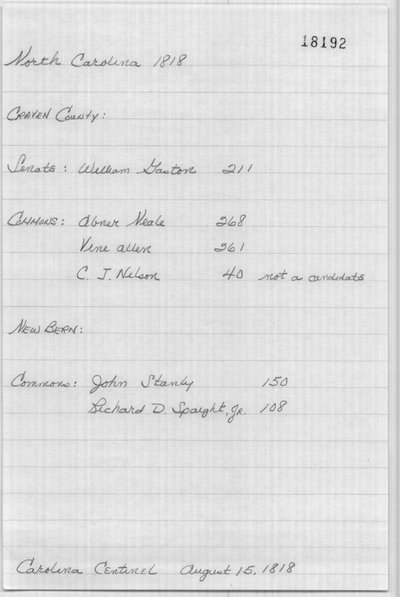 18192
North Carolina 1818
Craven County:
Senate: William Gaston 211
Commons: Abner Neale 268
Vine Allen 261
C. J. Nelson 40 not a candidate
New Bern:
Commons: John Stanly 150
Richard D. Spaight, Jr. 108
Carolina Centinel August 15, 1818